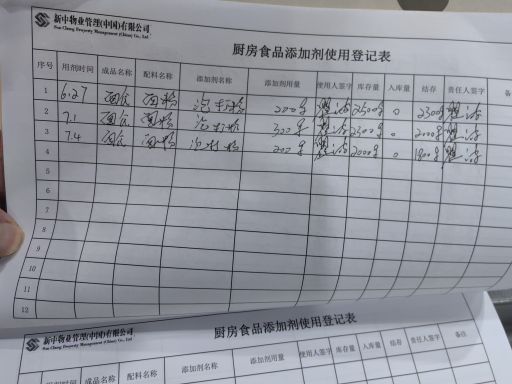 新中物业管理(中国)有限公司
Sun Chung Property Management (China) Co., Ltd
厨房食品添加剂使用登记表
序号 用剂时间 成品名称 配料名称 添加剂名称 添加剂用量 使用人签字 库存量 入库量 结存 责任人签字 备
1 6.27 面食 面粉 泡打粉 200g 2500g 0 2300g
2 7.1 面食 面粉 泡打粉 300g 2300g 0 2000g
3 7.4 面食 面粉 泡打粉 200g 2000g 0 1800g
4
5
6
7
8
9
10
11
12
新中物业管理(中国)有限公司
Sun Chung Property Management (China) Co., Ltd
厨房食品添加剂使用登记表
用剂时间 成品名称 配料名称 添加剂名称 添加剂用量 使用人签字 库存量 入库量 结存 责任人签字 备注